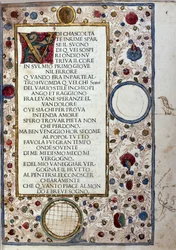 VOI CHASCOLTA
TE INRIME SPAR
SE IL SVONO
DI QVEI SOSPI
RI ONDIO NV
TRIVA IL CORE
IN SVL MIO PRIMO GIOVE
NILE ERRORE
QVANDO ERA IN PARTE AL
TRO HVOMO DA QVEL CHI SONO
DEL VARIO STILE IN CHIO PI
ANGO ET RAGIONO
FRA LEVANE SPERANZE EL
VAN DOLORE
OVE SIA CHI PER PROVA
INTENDA AMORE
SPERO TROVAR PIETA NON
CHE PERDONO
MA BEN VEGGIO HOR SI COME
AL POPOL TVTTO
FAVOLA FVI GRAN TEMPO
ONDE SOVENTE
DI ME MEDESMO MECO MI
VERGOGNO
E DEL MIO VANEGGIAR VER
GOGNA E IL FRVTTO
AL PENTERSI EL CONOSCER
CHIARAMENTE
CHE QVANTO PIACE AL MON
DO E BREVE SOGNO